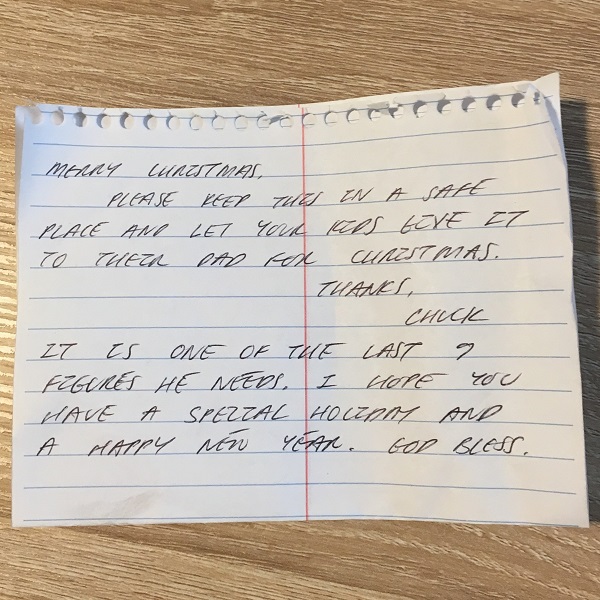 MERRY CHRISTMAS,
PLEASE KEEP THIS IN A SAFE
PLACE AND LET YOUR KIDS GIVE IT
TO THEIR DAD FOR CHRISTMAS.
THANKS,
CHUCK
IT IS ONE OF THE LAST 9
FIGURES HE NEEDS. I HOPE YOU
HAVE A SPECIAL HOLIDAY AND
A HAPPY NEW YEAR. GOD BLESS.